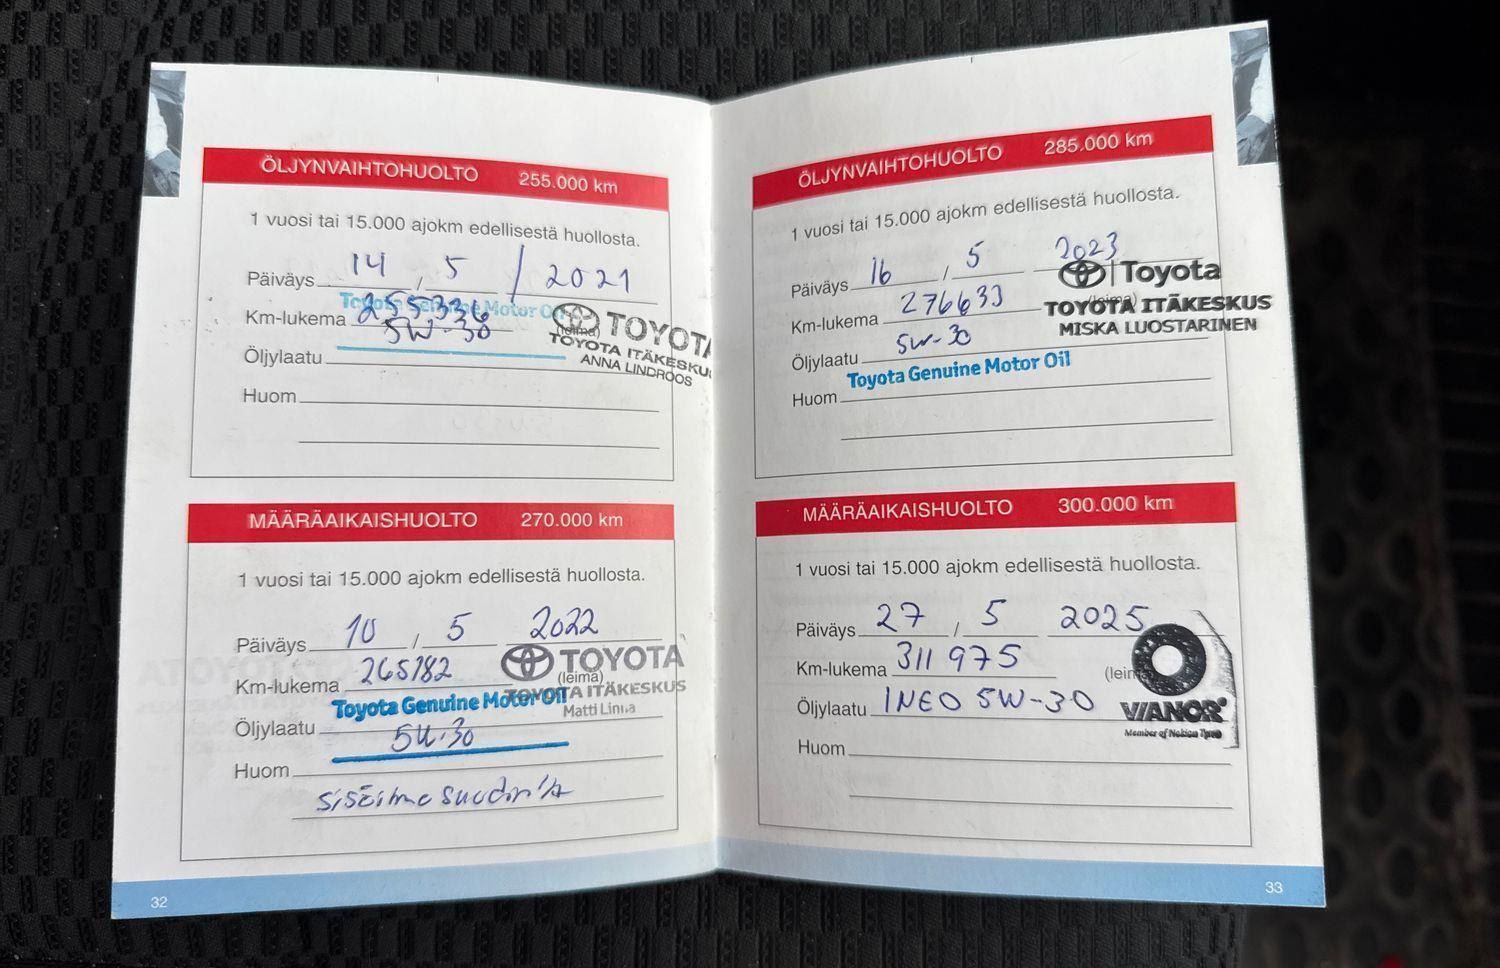 ÖLJYNVAIHTOHUOLTO 255.000 km
1 vuosi tai 15.000 ajokm edellisestä huollosta.
Päiväys 14 / 5 / 2021
Toyota Genuine Motor Oil
Km-lukema 255336 (leima) TOYOTA
5W-30 TOYOTA ITÄKESKU
Öljylaatu ANNA LINDROOS
Huom
MÄÄRÄAIKAISHUOLTO 270.000 km
1 vuosi tai 15.000 ajokm edellisestä huollosta.
Päiväys 10 / 5 2022
Km-lukema 265182 (leima) TOYOTA
Toyota Genuine Motor Oil TOYOTA ITÄKESKUS
Öljylaatu 5W-30 Matti
Huom
32
ÖLJYNVAIHTOHUOLTO 285.000 km
1 vuosi tai 15.000 ajokm edellisestä huollosta.
Päiväys 16 / 5 2023
Toyota
Km-lukema 276633 (leima) TOYOTA ITÄKESKUS
MISKA LUOSTARINEN
Öljylaatu 5W-30
Toyota Genuine Motor Oil
Huom
MÄÄRÄAIKAISHUOLTO 300.000 km
1 vuosi tai 15.000 ajokm edellisestä huollosta.
Päiväys 27 / 5 2025
Km-lukema 311 975 (leim
Öljylaatu INEO 5W-30 VIANOR
Member of Nokian Tyres
Huom
33